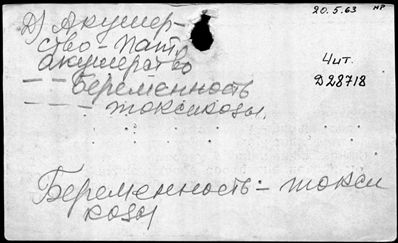 20.5.63 НР
Д) Акушер-
ство - пато
акушерство
— — беременность
— — — токсикозы.
Чит.
Д28718
Беременность - токси
козы